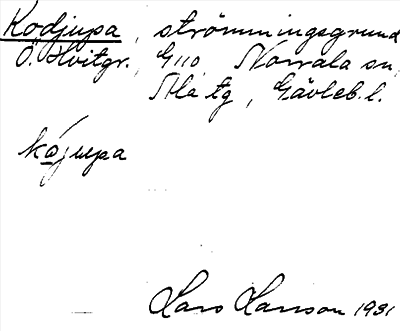 Kodjupa, strömmingsgrund
Ö. Hvitgr., G110, Norrala sn,
Ala tg, Gävleb. l.
kájupa
Lars Larsson 1931